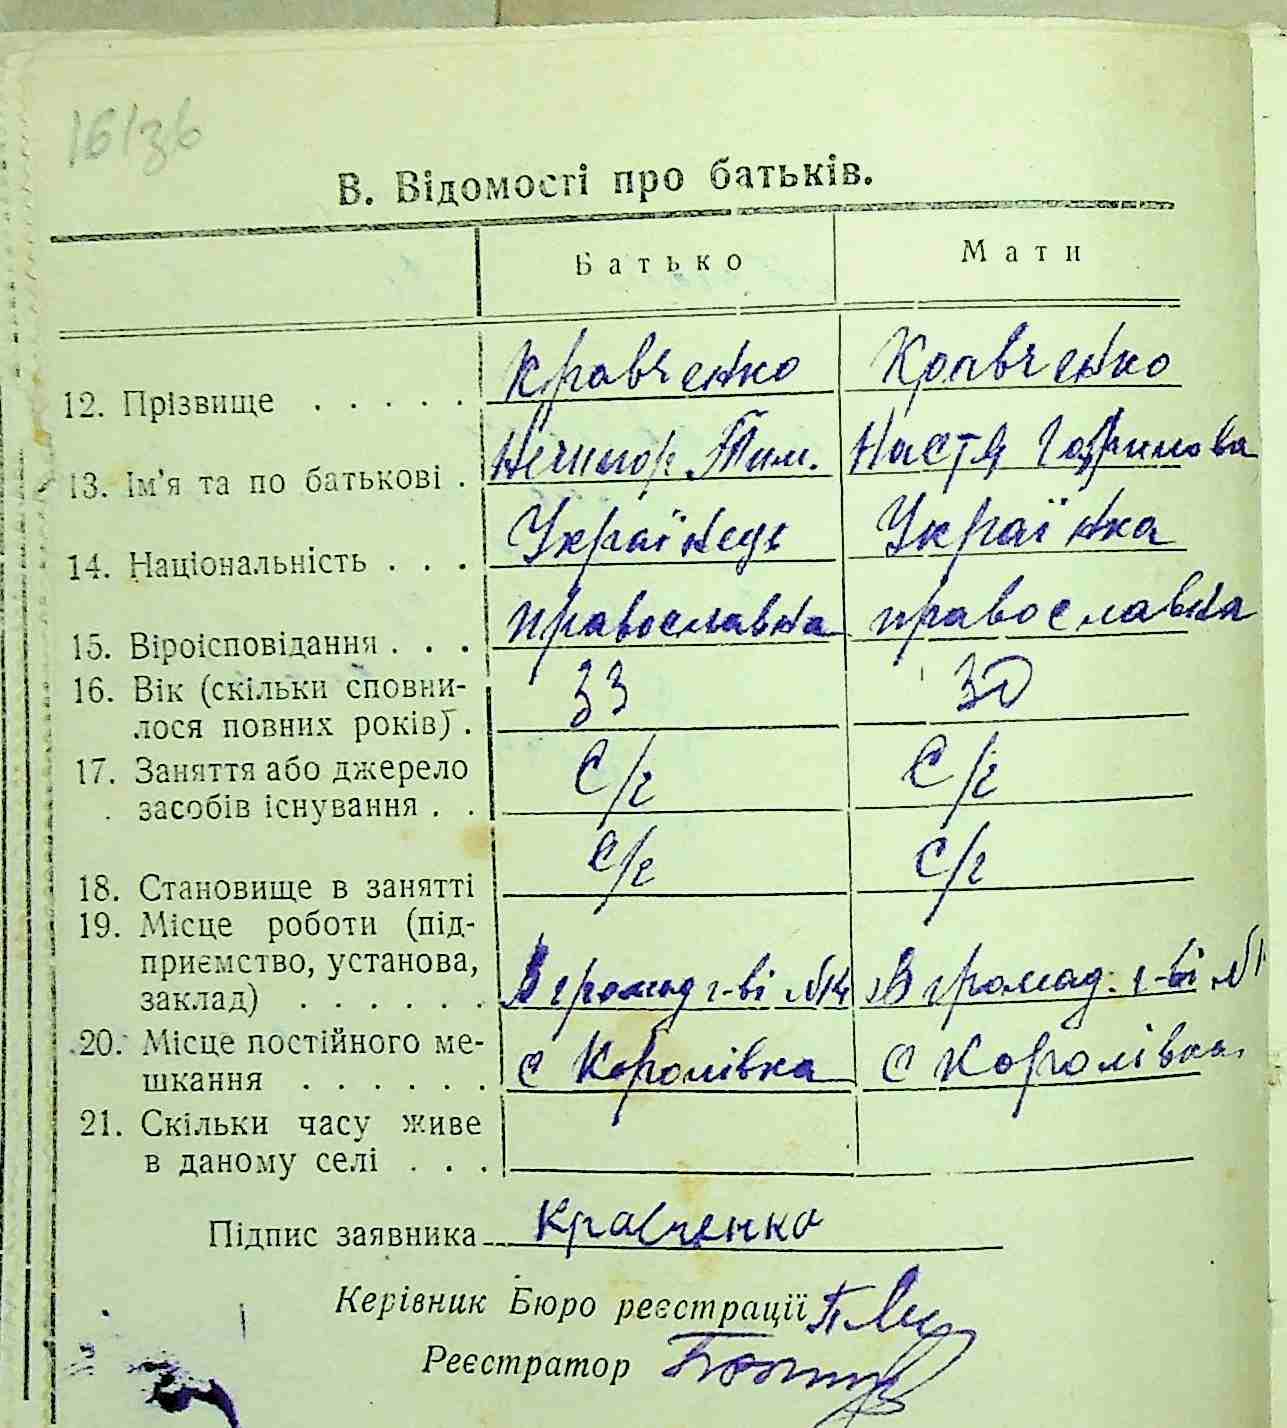 16/зв
В. Відомості про батьків.
Батько Мати
12. Прізвище . . . . . Кравченко Кравченко
13. Ім'я та по батькові . Нечипор Тим. Настя
14. Національність . . . Українець Українка
15. Віроісповідання . . . православна православна
16. Вік (скільки сповни-
лося повних років) . 33 30
17. Заняття або джерело
засобів існування . . С/г С/г
18. Становище в занятті С/г С/г
19. Місце роботи (під-
приємство, установа,
заклад) . . . . . . В громад г-ві В громад. г-ві
20. Місце постійного ме-
шкання . . . . . . с Королівка с Королівка
21. Скільки часу живе
в даному селі . . .
Підпис заявника Кравченко
Керівник Бюро реєстрації
Реєстратор